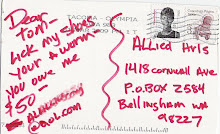 Dear
tom-
Lick my shoes
your a worm
you owe me
$50-
@aol.com
TACOMA - OLYMPIA
Allied Arts
1418 cornwall Ave
P.O.BOX 2584
Bellingham WA
98227